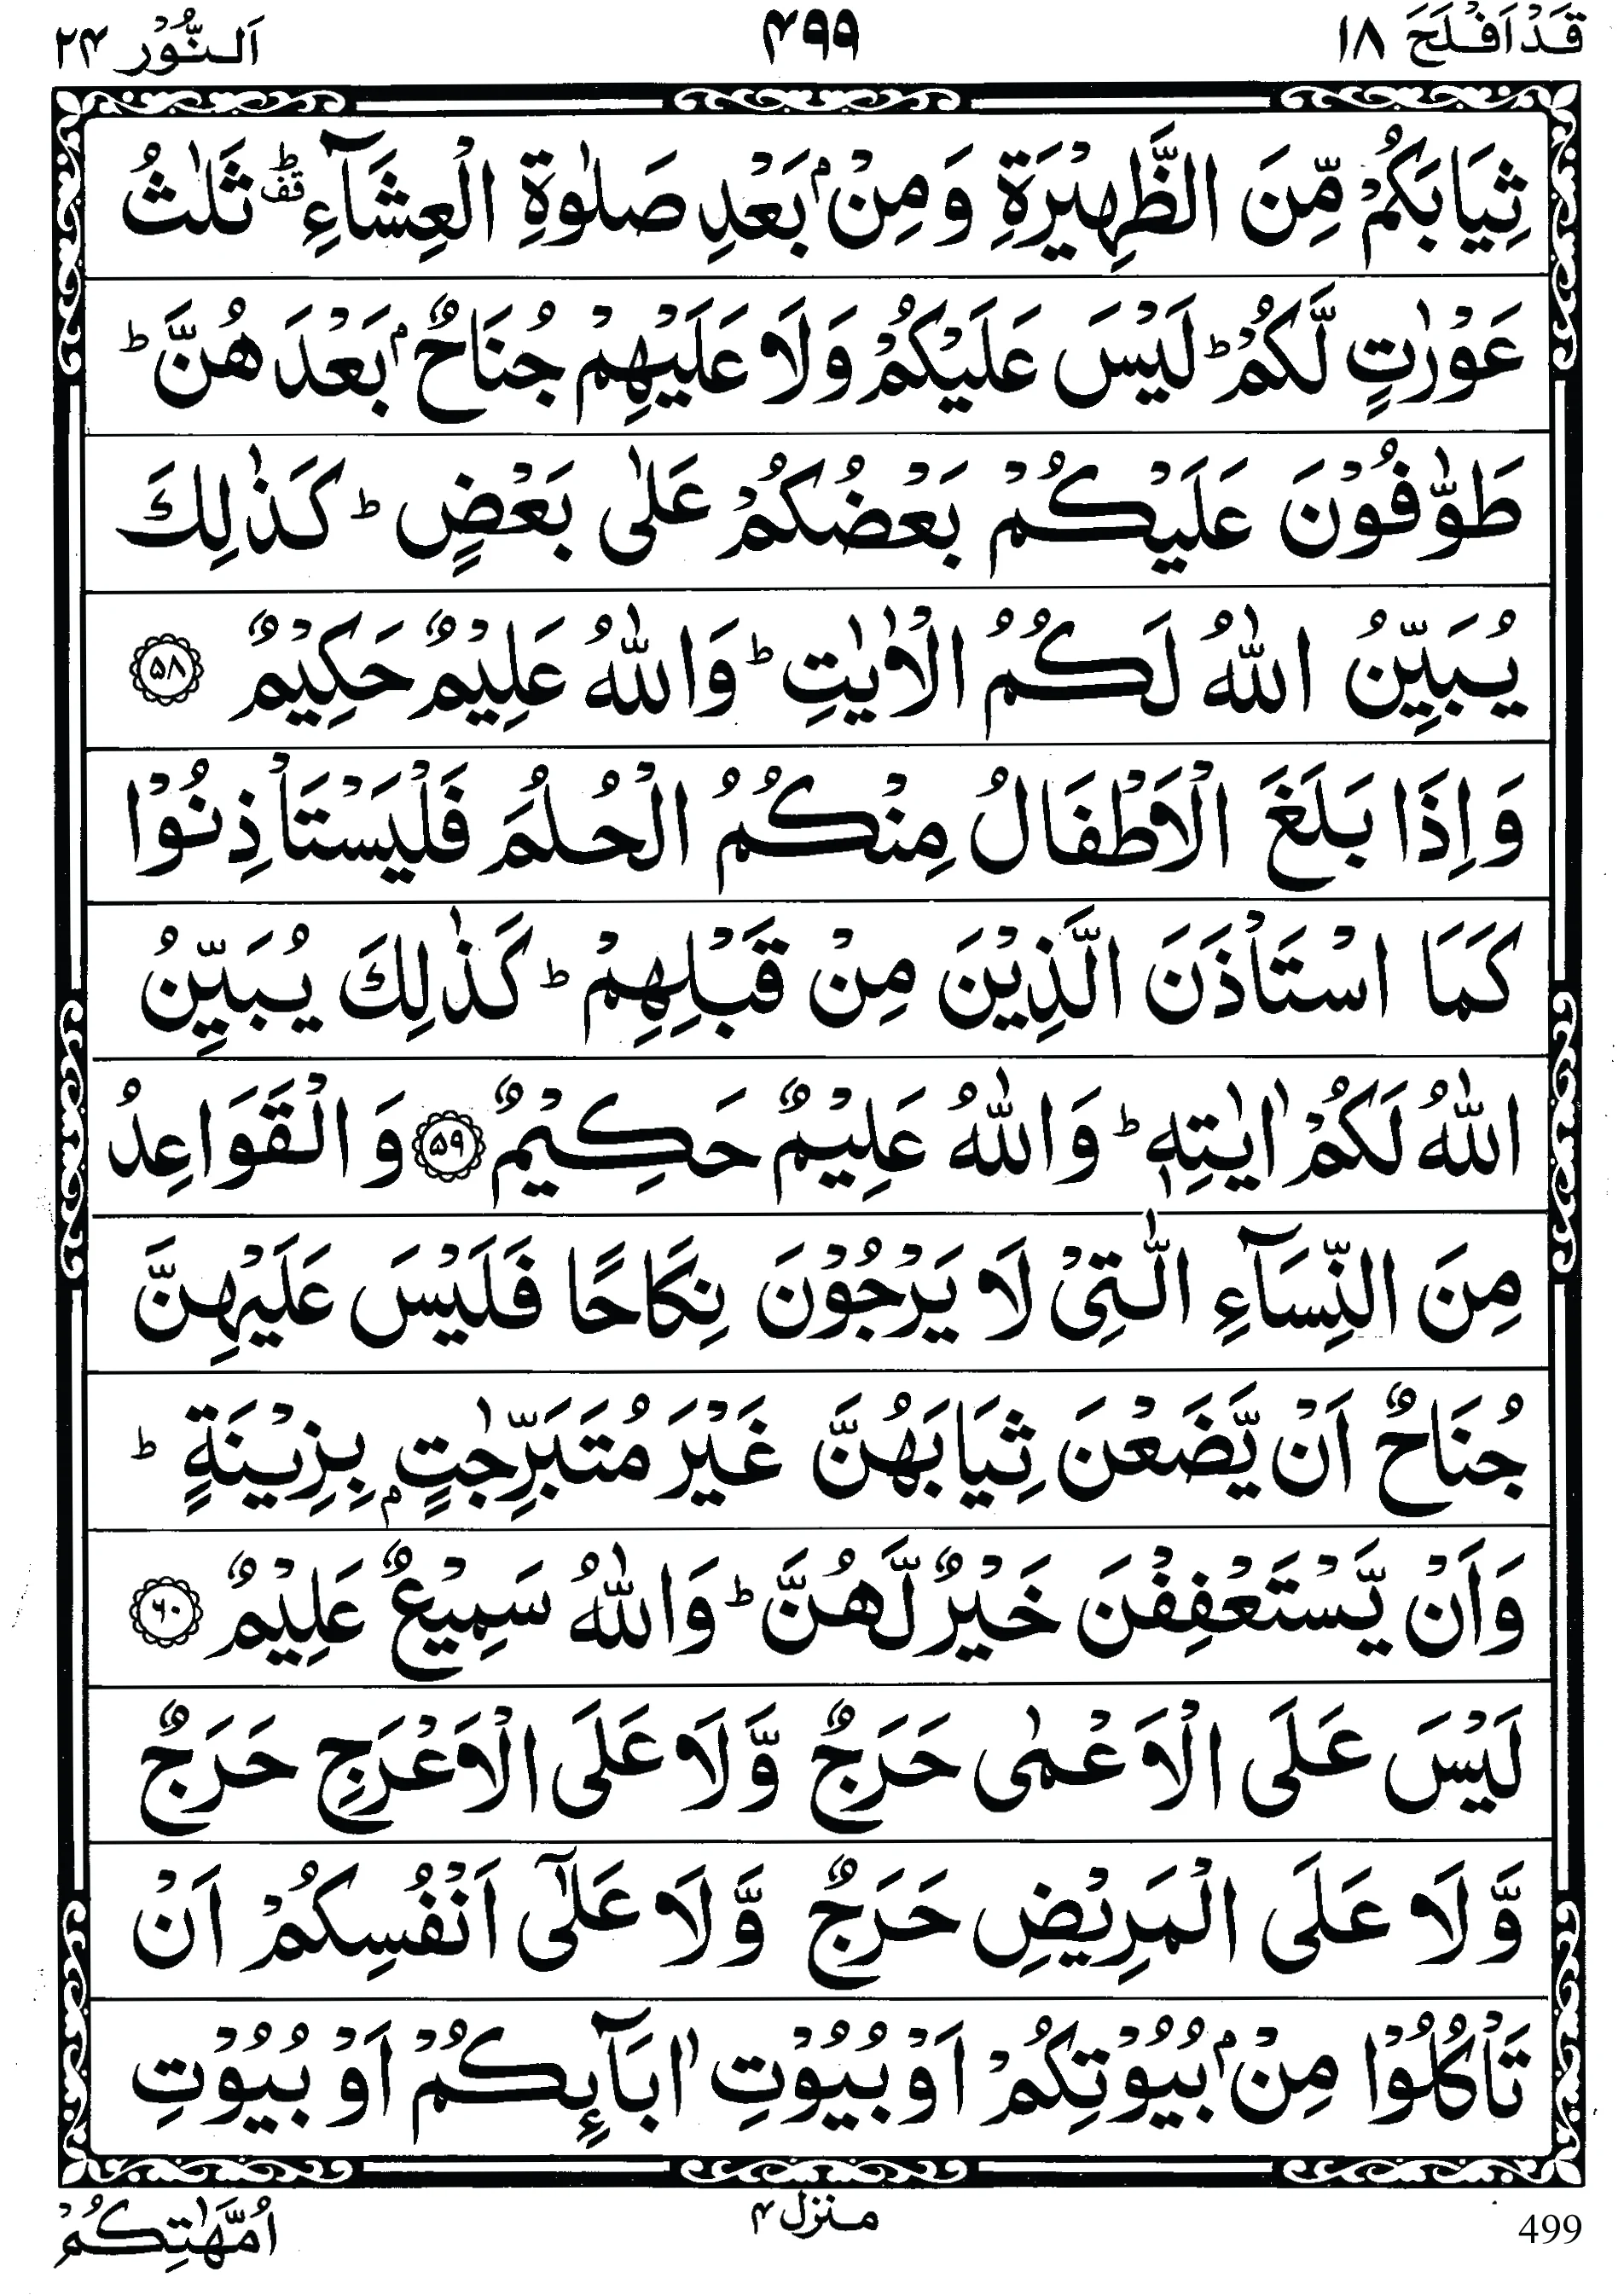 قَدْ اَفْلَحَ ١٨ ۴۹۹ اَلنُّوْر ٢۴
ثِيَابَكُمْ مِّنَ الظَّهِيْرَةِ وَ مِنْۢ بَعْدِ صَلٰوةِ الْعِشَآءِ ؕ قف ثَلٰثُ
عَوْرٰتٍ لَّكُمْ ؕ لَيْسَ عَلَيْكُمْ وَلَا عَلَيْهِمْ جُنَاحٌۢ بَعْدَهُنَّ ؕ
طَوّٰفُوْنَ عَلَيْكُمْ بَعْضُكُمْ عَلٰى بَعْضٍ ؕ كَذٰلِكَ
يُبَيِّنُ اللّٰهُ لَكُمُ الْاٰيٰتِ ؕ وَاللّٰهُ عَلِيْمٌ حَكِيْمٌ ۵۸
وَاِذَا بَلَغَ الْاَطْفَالُ مِنْكُمُ الْحُلُمَ فَلْيَسْتَاْذِنُوْا
كَمَا اسْتَاْذَنَ الَّذِيْنَ مِنْ قَبْلِهِمْ ؕ كَذٰلِكَ يُبَيِّنُ
اللّٰهُ لَكُمْ اٰيٰتِهٖ ؕ وَاللّٰهُ عَلِيْمٌ حَكِيْمٌ ۵۹ وَ الْقَوَاعِدُ
مِنَ النِّسَآءِ الّٰتِيْ لَا يَرْجُوْنَ نِكَاحًا فَلَيْسَ عَلَيْهِنَّ
جُنَاحٌ اَنْ يَّضَعْنَ ثِيَابَهُنَّ غَيْرَ مُتَبَرِّجٰتٍۭ بِزِيْنَةٍ ؕ
وَاَنْ يَّسْتَعْفِفْنَ خَيْرٌ لَّهُنَّ ؕ وَاللّٰهُ سَمِيْعٌ عَلِيْمٌ ۶۰
لَيْسَ عَلَى الْاَعْمٰى حَرَجٌ وَّلَا عَلَى الْاَعْرَجِ حَرَجٌ
وَّلَا عَلَى الْمَرِيْضِ حَرَجٌ وَّلَا عَلٰٓى اَنْفُسِكُمْ اَنْ
تَاْكُلُوْا مِنْۢ بُيُوْتِكُمْ اَوْ بُيُوْتِ اٰبَآئِكُمْ اَوْ بُيُوْتِ
اُمَّهٰتِكُمْ منزل ۴ 499